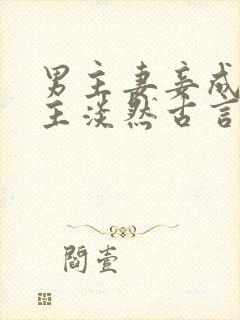 男主妻妾成
主淡然古言
閻壹